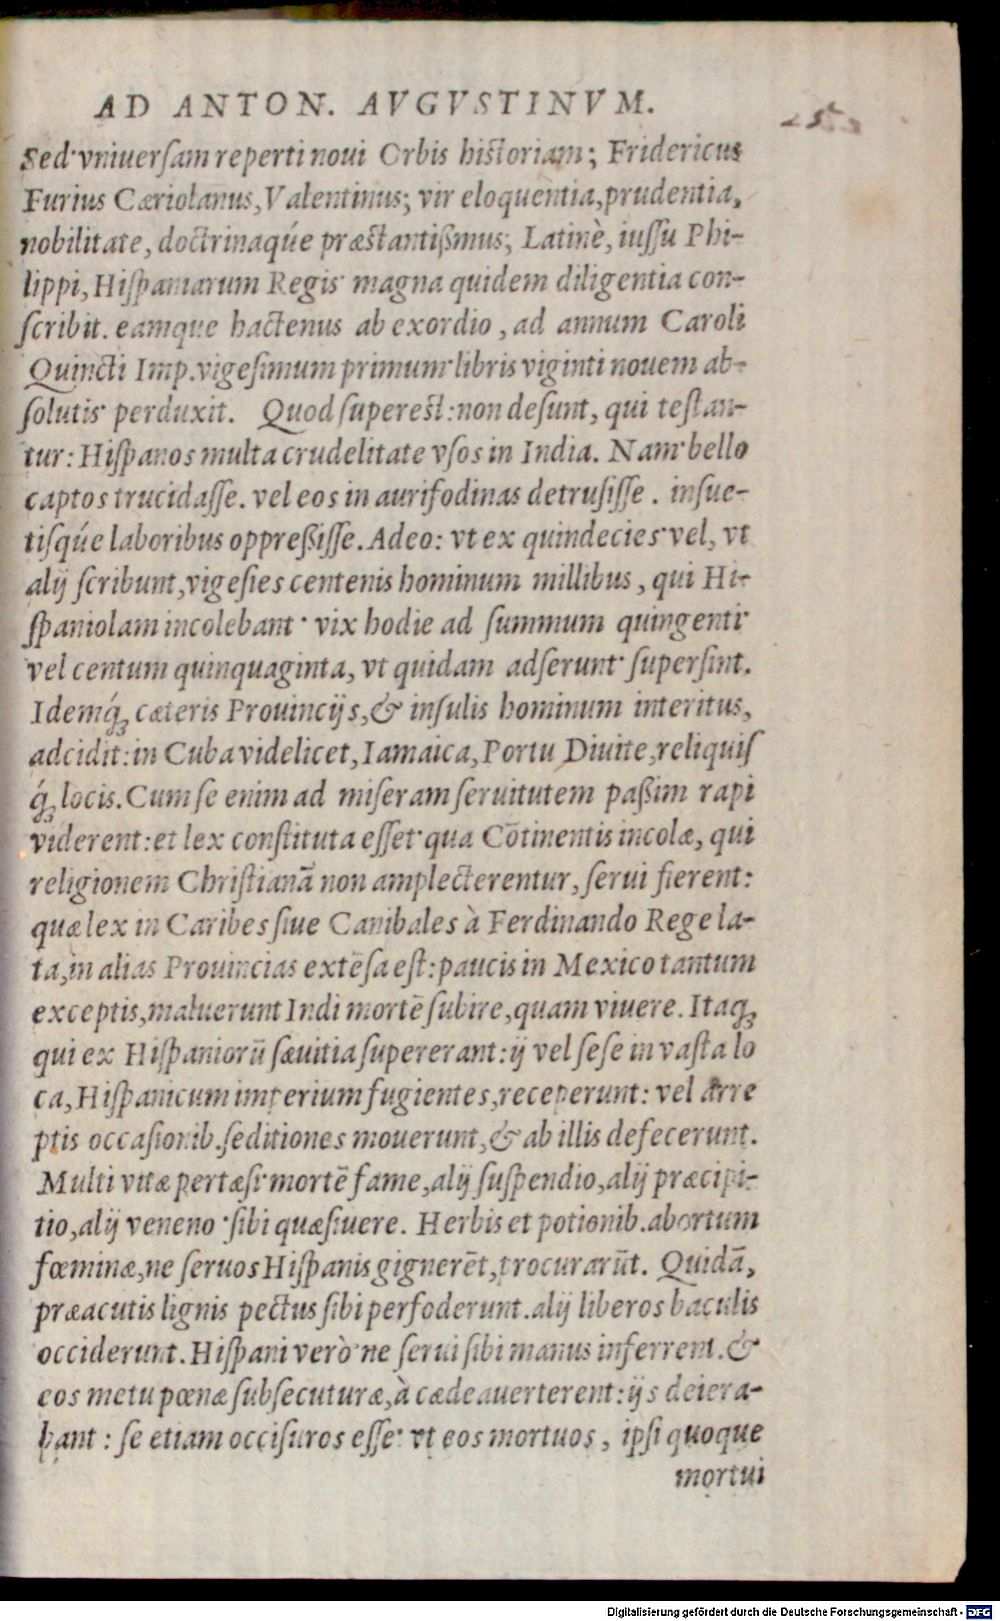 AD ANTON. AVGVSTINVM.
Sed vniuersam reperti noui Orbis historiam; Fridericus
Furius Cæriolanus, Valentinus; vir eloquentia, prudentia,
nobilitate, doctrinaqúe præstantißmus; Latinè, iussu Phi-
lippi, Hispaniarum Regis magna quidem diligentia con-
scribit. eamque hactenus ab exordio, ad annum Caroli
Quincti Imp. vigesimum primum libris viginti nouem ab-
solutis perduxit. Quod superest: non desunt, qui testan-
tur: Hispanos multa crudelitate vsos in India. Nam bello
captos trucidasse. vel eos in aurifodinas detrusisse. insue-
tisqúe laboribus oppreßisse. Adeo: vt ex quindecies vel, vt
alij scribunt, vigesies centenis hominum millibus, qui Hi-
spaniolam incolebant vix hodie ad summum quingenti
vel centum quinquaginta, vt quidam adserunt supersint.
Idemq́; cæteris Prouincijs, & insulis hominum interitus,
adcidit: in Cuba videlicet, Iamaica, Portu Diuite, reliquis
q́; locis. Cum se enim ad miseram seruitutem paßim rapi
viderent: et lex constituta esset qua Cōtinentis incolæ, qui
religionem Christianā non amplecterentur, serui fierent:
quæ lex in Caribes siue Canibales à Ferdinando Rege la-
ta, in alias Prouincias extēsa est: paucis in Mexico tantum
exceptis, maluerunt Indi mortē subire, quam viuere. Itaq;
qui ex Hispaniorū sæuitia supererant: ij vel sese in vasta lo
ca, Hispanicum imperium fugientes, receperunt: vel arre
ptis occasionib. seditiones mouerunt, & ab illis defecerunt.
Multi vitæ pertæsi mortē fame, alij suspendio, alij præcipi-
tio, alij veneno sibi quæsiuere. Herbis et potionib. abortum
fœminæ, ne seruos Hispanis gignerēt, procurarūt. Quidā,
præacutis lignis pectus sibi perfoderunt. alij liberos baculis
occiderunt. Hispani verò ne serui sibi manus inferrent. &
eos metu pœnæ subsecuturæ, à cæde auerterent: ijs deiera-
bant: se etiam occisuros esse: vt eos mortuos, ipsi quoque
mortui
Digitalisierung gefördert durch die Deutsche Forschungsgemeinschaft - DFG